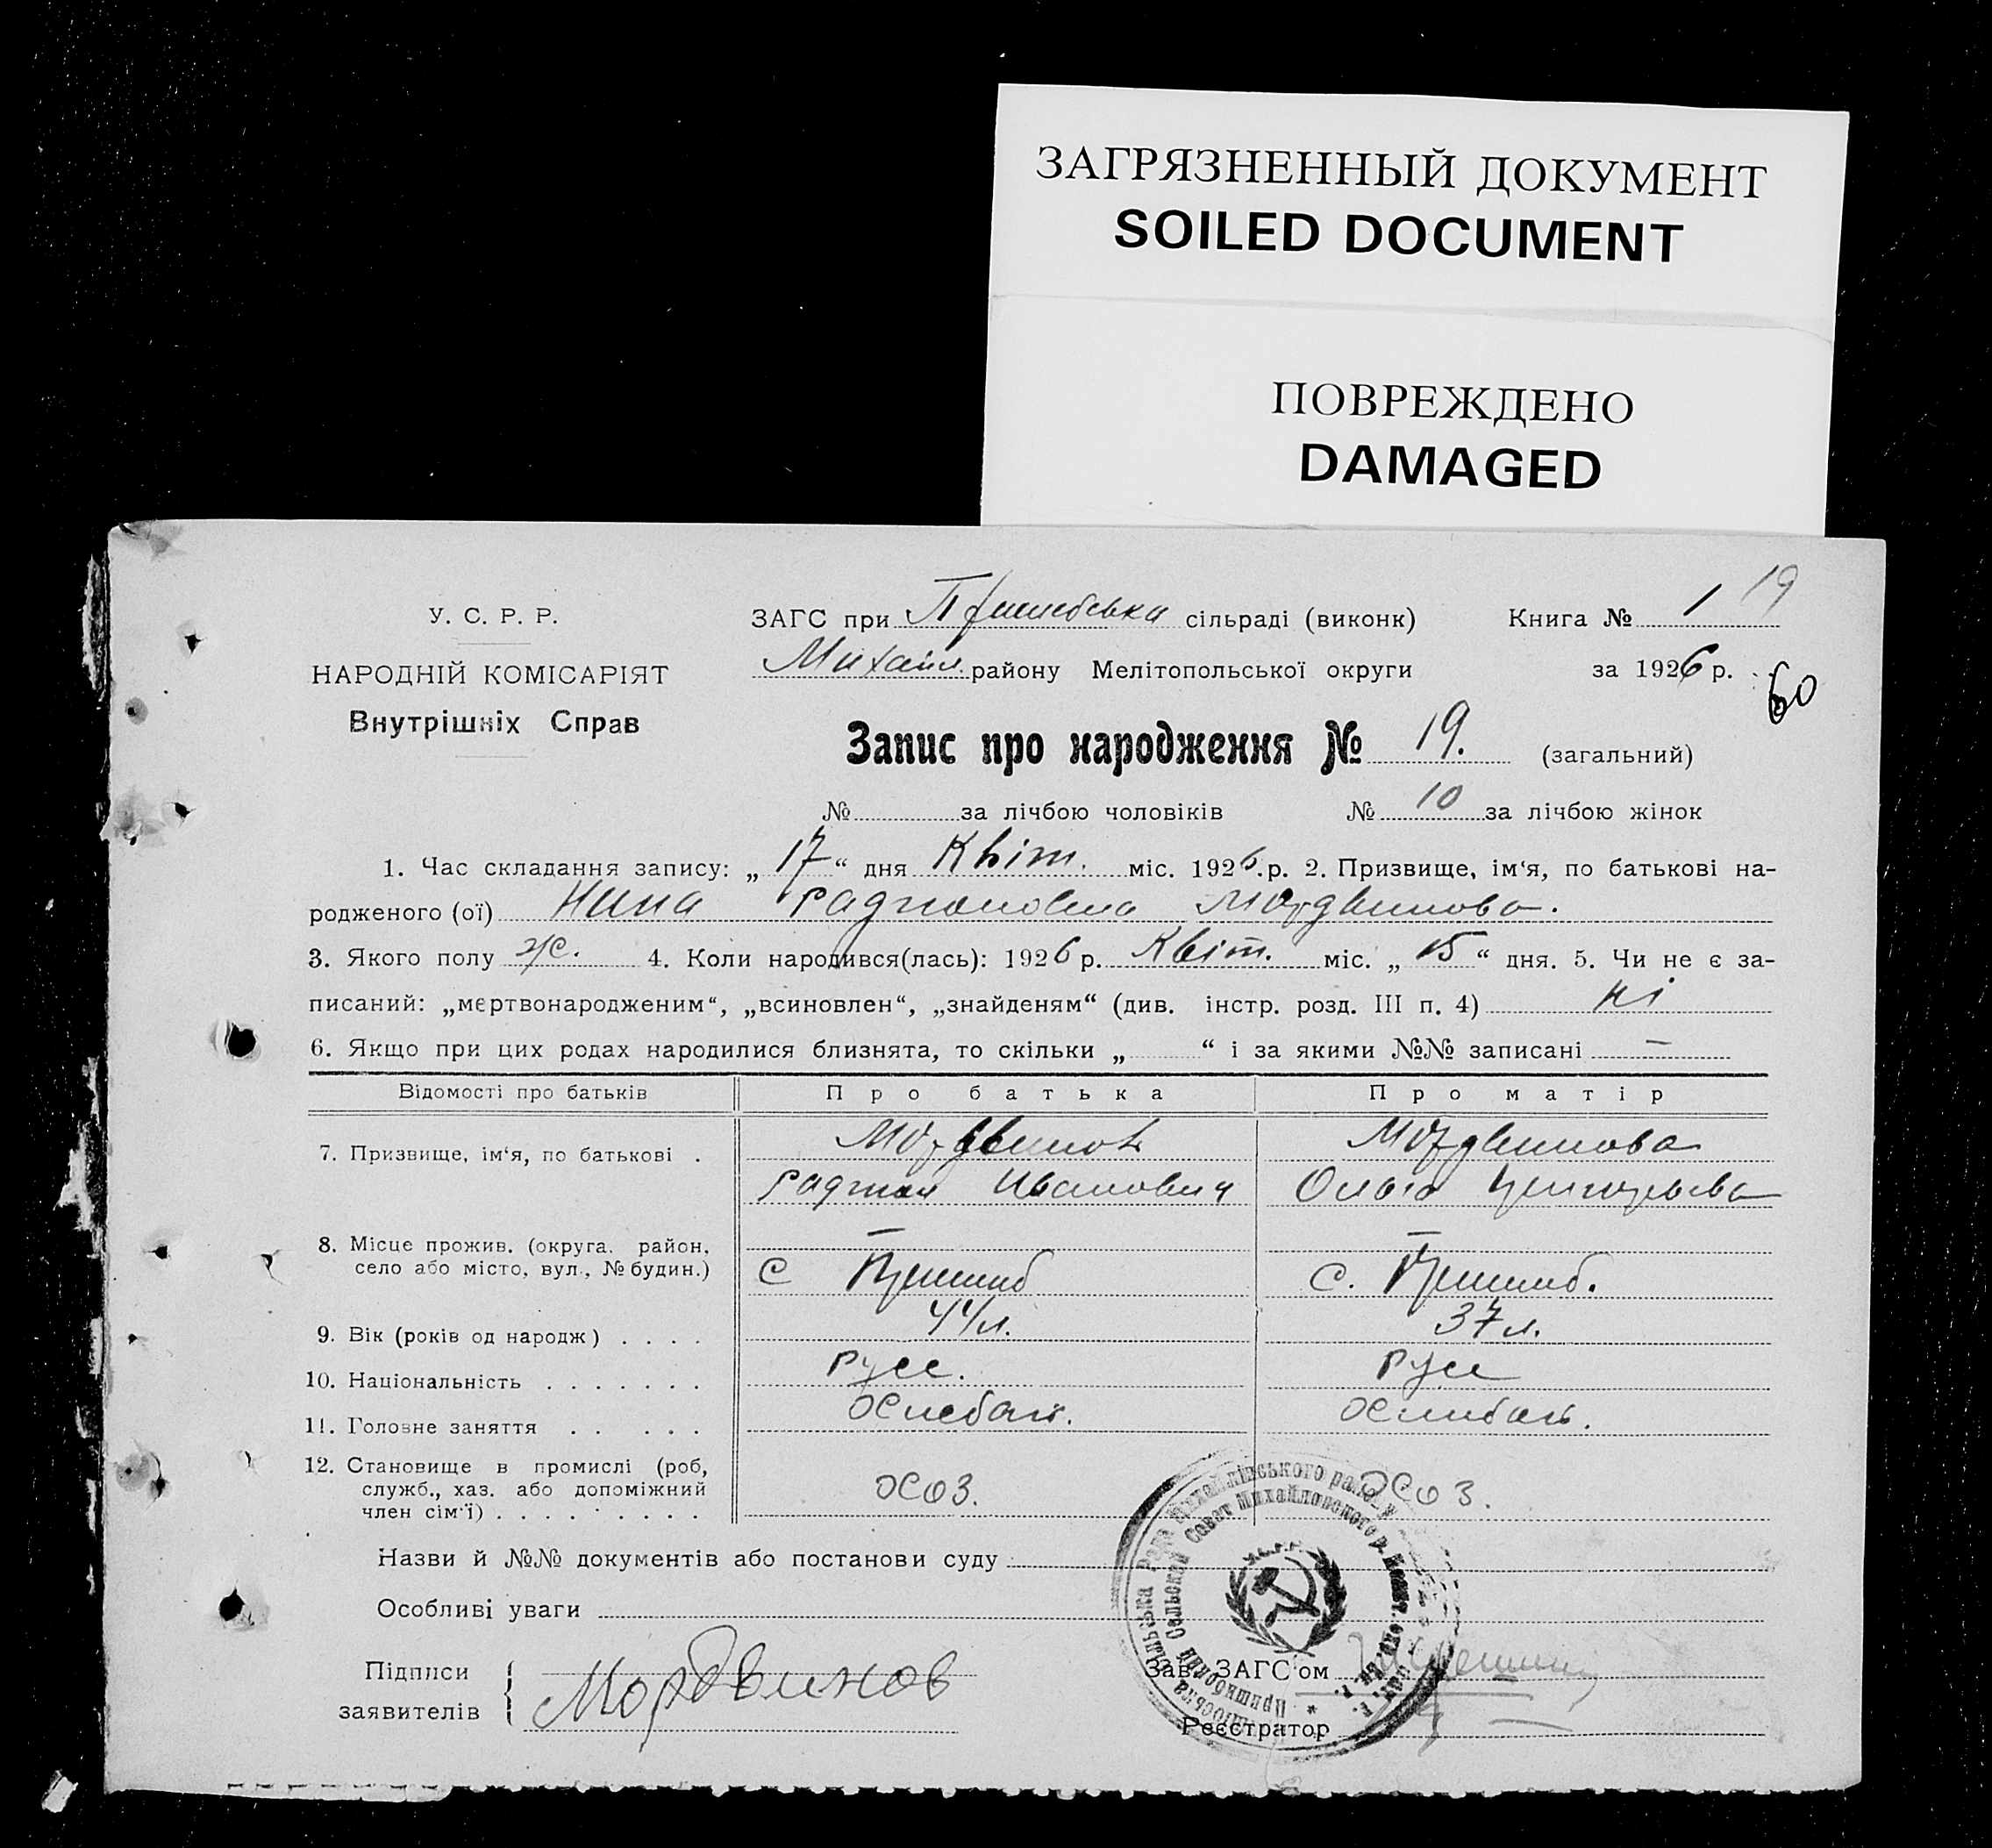 ЗАГРЯЗНЕННЫЙ ДОКУМЕНТ
SOILED DOCUMENT
ПОВРЕЖДЕНО
DAMAGED
У. С. Р. Р.
НАРОДНІЙ КОМІСАРІЯТ
Внутрішніх Справ
ЗАГС при Пришибська сільраді (виконк) Книга № 1 19
Михайл. району Мелітопольської округи за 1926 р.
60
Запис про народження № 19. (загальний)
№ за лічбою чоловіків № 10 за лічбою жінок
1. Час складання запису: „ 17 “ дня Квіт. міс. 1926.р. 2. Призвище, ім‘я, по батькові на-
родженого (ої) Нина Радионовна Мордвинова.
3. Якого полу ж. 4. Коли народився(лась): 1926 р. Квіт. міс. „ 15 “ дня. 5. Чи не є за-
писаний: „мертвонародженим“, „всиновлен“, „знайденям“ (див. інстр. розд. III п. 4) ні
6. Якщо при цих родах народилися близнята, то скільки „ “ і за якими №№ записані —
Відомості про батьків Про батька Про матір
7. Призвище, ім‘я, по батькові . Мордвинов Мордвинова
Радион Иванович Ольга Григорьева
8. Місце прожив. (округа, район, — —
село або місто, вул., № будин.) С Пришиб С. Пришиб.
9. Вік (років од народж) . . . . 44 л. 37 л.
10. Національність . . . . . . . Русс. Русс
11. Головне заняття . . . . . Хлебоп. Хлебоп.
12. Становище в промислі (роб, служб., хаз. або допоміжний член сім‘ї) . . . . . . . . . хоз. хоз.
Назви й №№ документів або постанови суду
Особливі уваги
Підписи
заявителів
Мордвинов
Зав. ЗАГС'ом
Реєстратор
Сільська Рада Михайлівського району
Пришибський Сельский Совет Михайловского р.